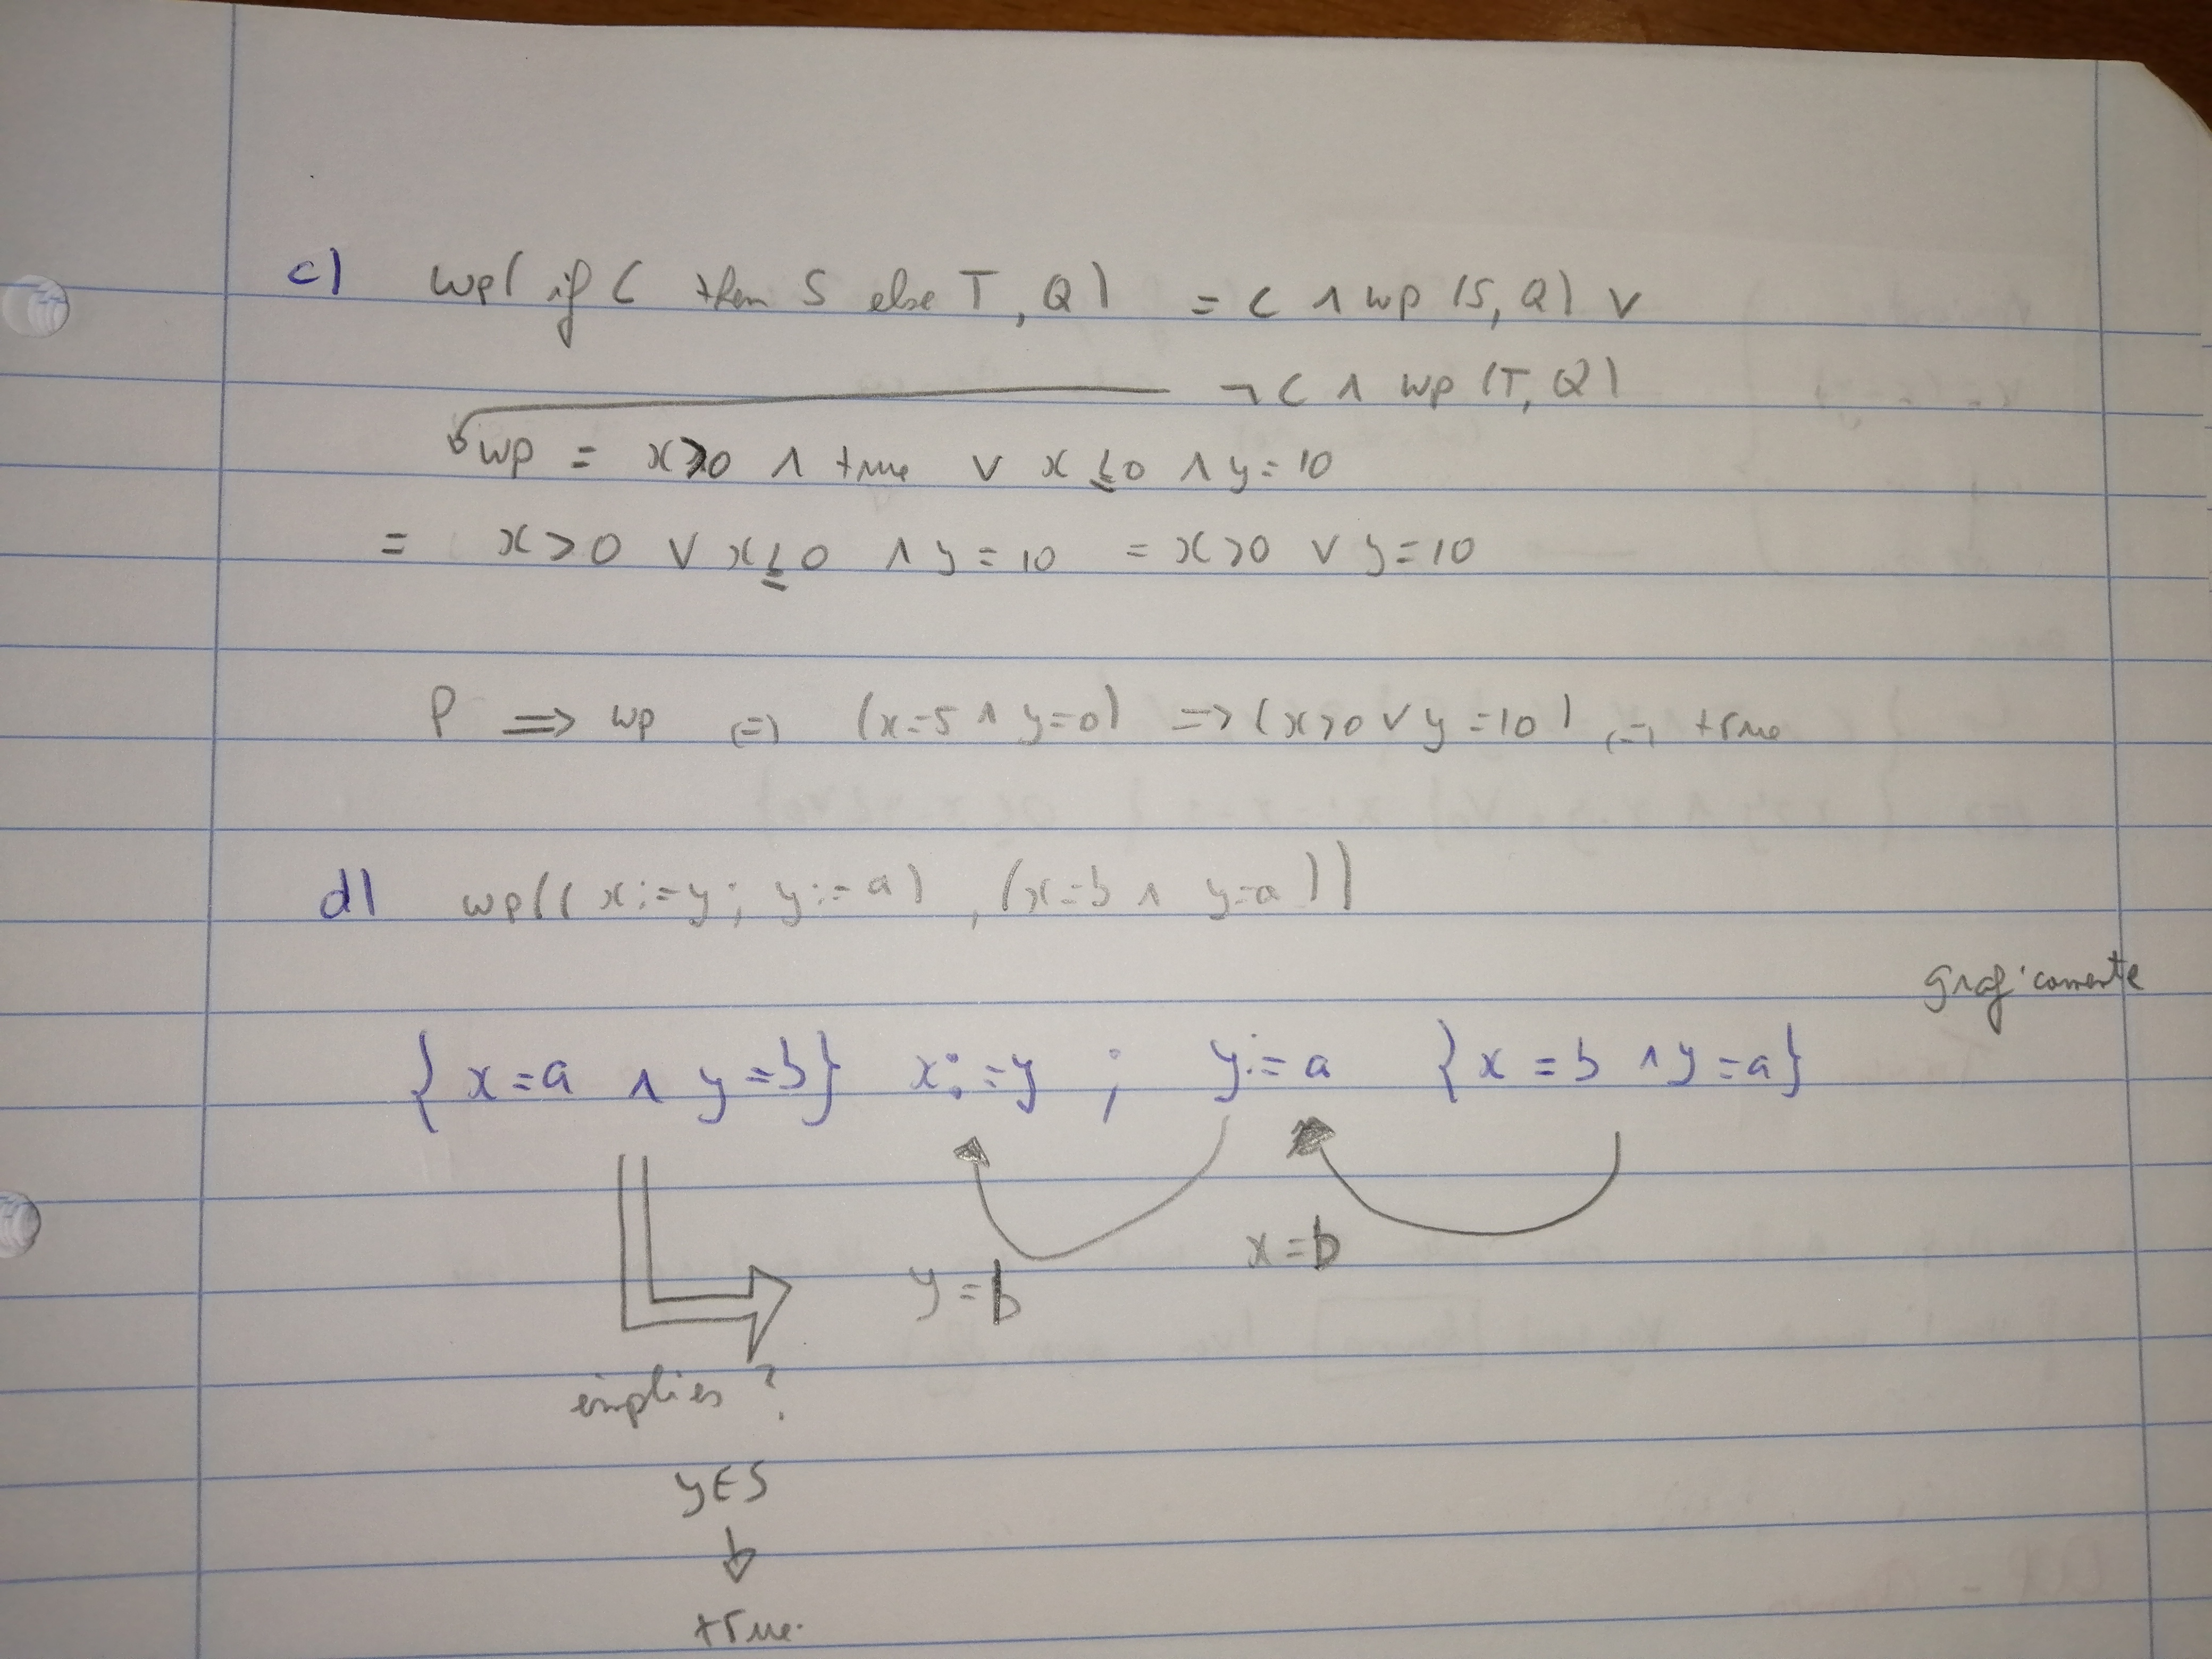 c) wp( if C then S else T, Q) = C ∧ wp (S, Q) ∨
¬ C ∧ wp (T, Q)
wp = x>0 ∧ true ∨ x ≤ 0 ∧ y = 10
= x > 0 ∨ x ≤ 0 ∧ y = 10 = x > 0 ∨ y = 10
P => wp (=) (x=5 ∧ y=0) => (x>0 ∨ y = 10) (=) true
d) wp(( x:=y; y:=a) , (x=b ∧ y=a))
graficamente
{ x=a ∧ y=b} x:=y ; y:=a {x = b ∧ y=a}
x=b
y=b
implies?
YES
true.